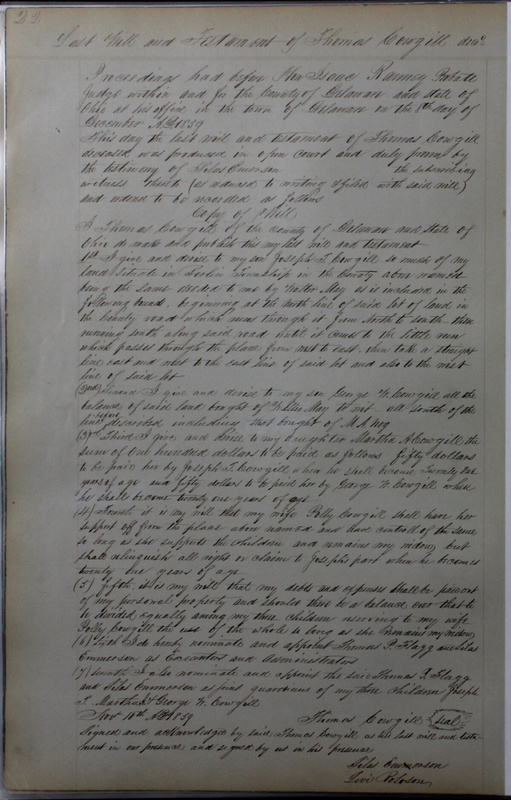 22
Last Will and Testament of Thomas Cowgill decd
Proceedings had before Hon Isaac Ranney Probate
Judge within and for the County of Delaware and State of
Ohio at his office in the town of Delaware on the 8th day of
December AD 1859
This day the last will and testament of Thomas Cowgill
deceased was produced in open Court and duly proven by
the testimony of Silas Emerson the subscribing
witness thereto (as reduced to writing & filed with said will)
and ordered to be recorded as follows
Copy of Will
I Thomas Cowgill of the County of Delaware and State of
Ohio do make and publish this my last will and testament
1st I give and devise to my son Joseph T. Cowgill so much of my
land situate in Berlin Township in the County above named
being the same deeded to me by Walter May as is included in the
following bounds. beginning at the north line of said lot of land in
the County road which runs through it from North to South then
running south along said road until it comes to the little run
which passes through the place from west to east. then take a straight
line east and west to the east line of said lot and also to the west
line of said lot
(2nd) Second I give and devise to my son George W. Cowgill all the
balance of said land bought of Walter May to wit. all south of the
line before described including that bought of
(3) Third I give and devise to my daughter Martha A Cowgill the
sum of one hundred dollars to be paid as follows fifty dollars
to be paid her by Joseph T. Cowgill when he shall become Twenty One
years of age and fifty dollars to be paid her by George W. Cowgill when
he shall become twenty one years of age
(4) Fourth it is my will that my wife Polly Cowgill shall have her
support off from the place above named and have controll of the same
so long as she supports the children and remains my widow but
shall relinquish all right or claim to Josephs part when he becomes
twenty one years of age
(5) Fifth it is my will that my debts and expenses shall be paid out
of my personal property and should there be a balance over that to
be divided equally among my three children reserving to my wife
Polly Cowgill the use of the whole so long as she remains my widow
(6) Sixth I do hereby nominate and appoint Thomas P. Flagg and Silas
Emmerson as Executors and Administrators
(7) Seventh I also nominate and appoint the said Thomas P. Flagg
and Silas Emmerson as joint guardians of my three children Joseph
T. Martha & George W. Cowgill
Nov 10th AD 1859 Thomas Cowgill (seal)
Signed and acknowledged by said Thomas Cowgill as his last will and testa-
ment in our presence and signed by us in his presence
Silas Emmerson
Levi Robison